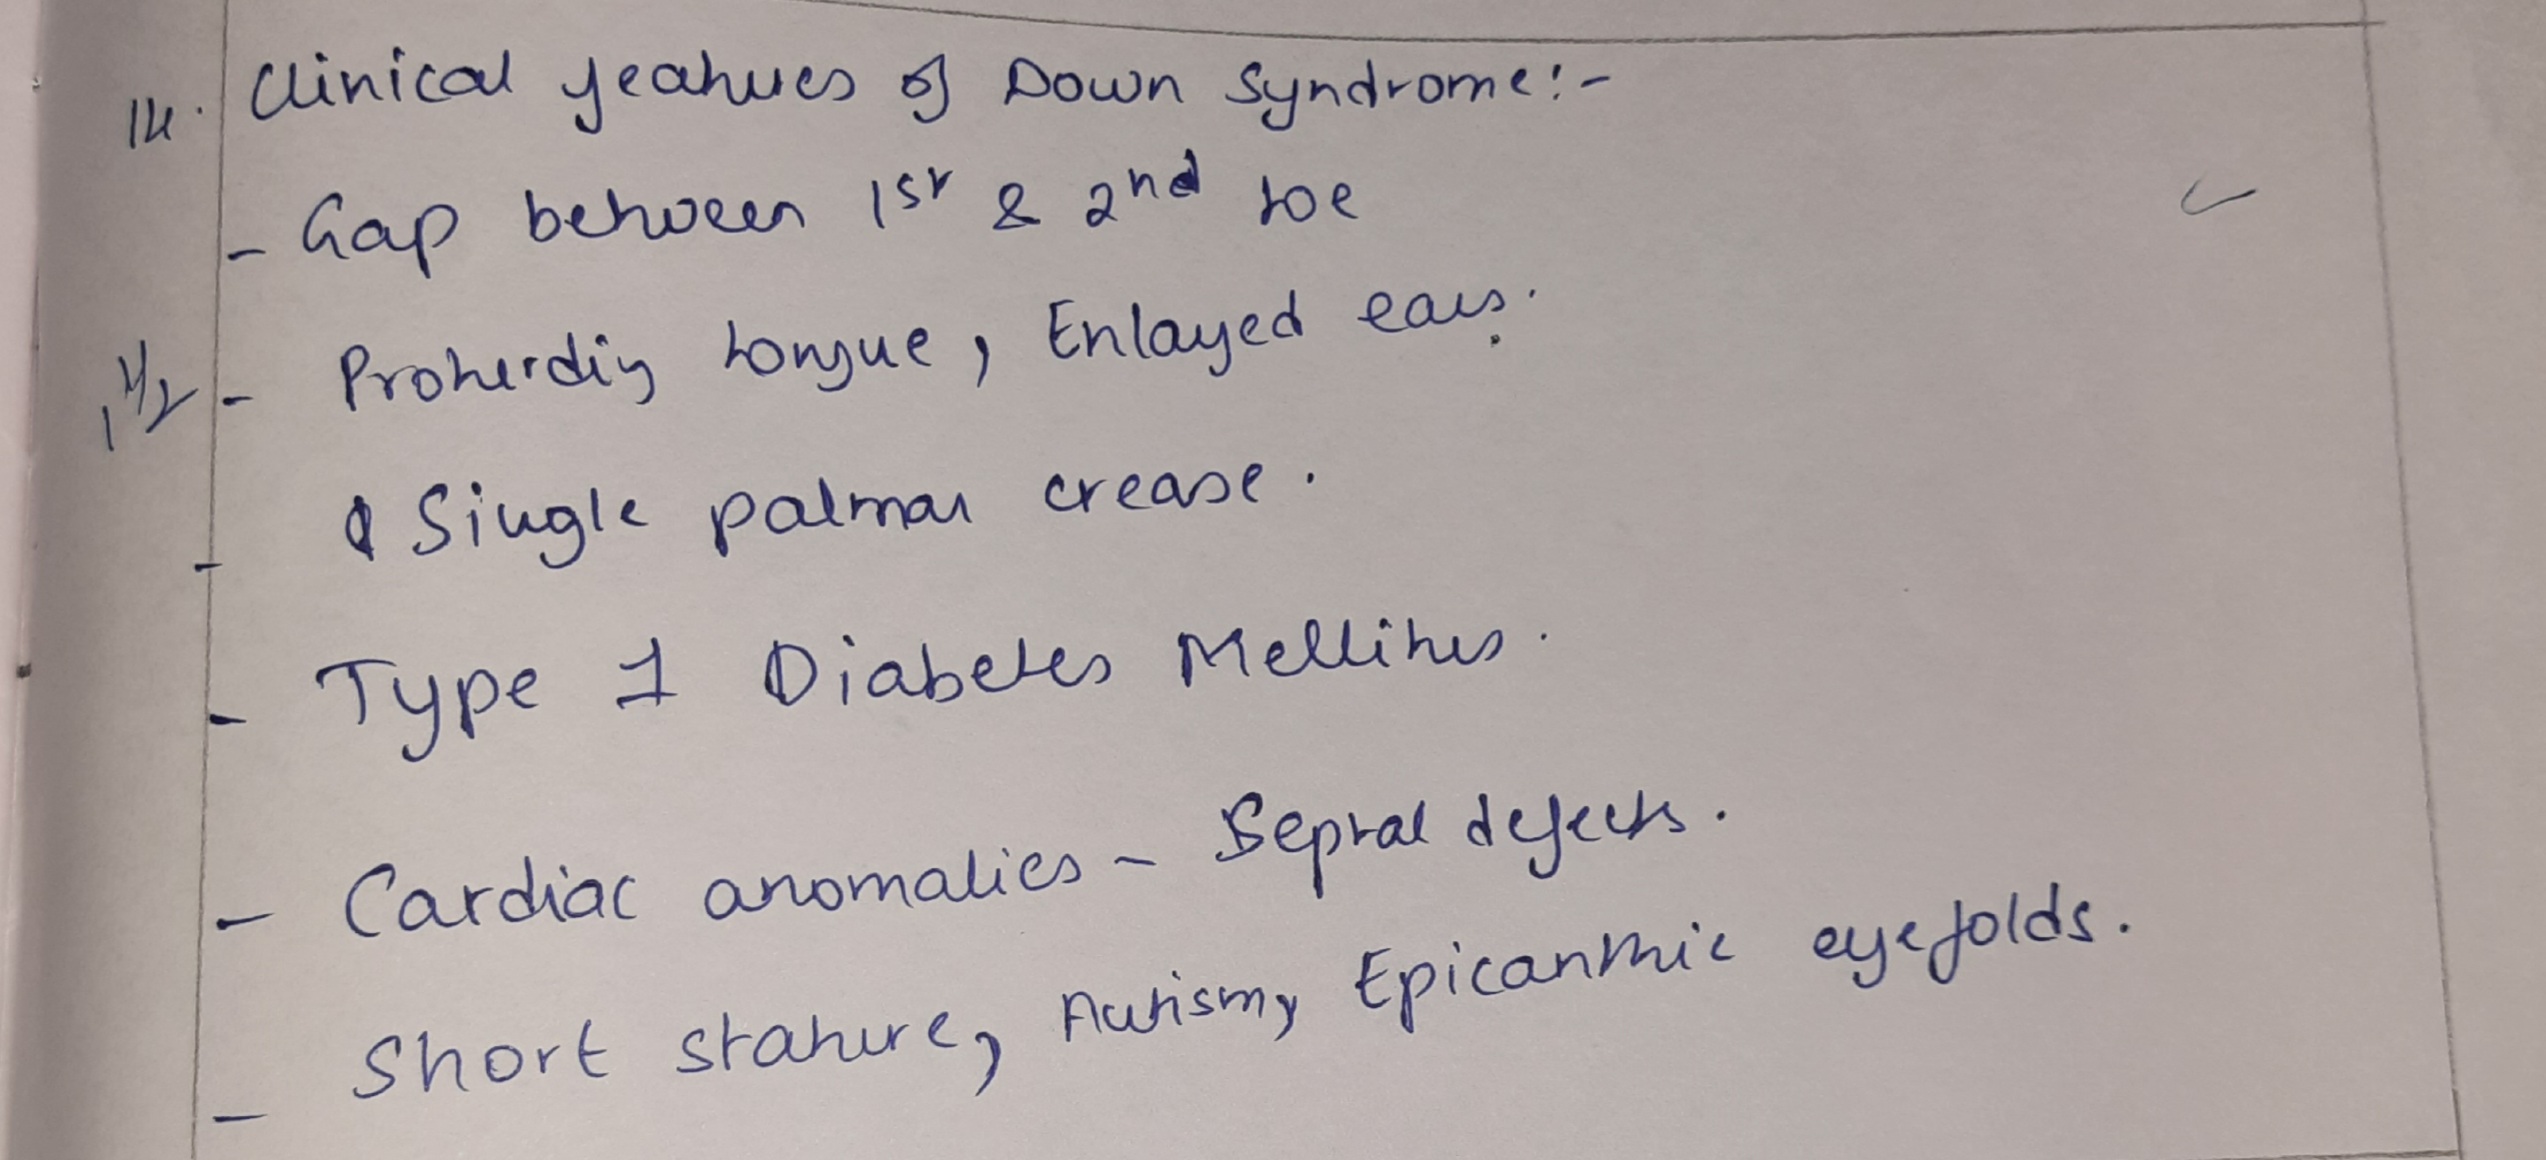 14. Clinical features of Down Syndrome:-
- Gap between 1st & 2nd toe
1 1/2 - Proterding tongue, Enlarged ears.
- Single palmar crease.
- Type 1 Diabetes Mellitus.
- Cardiac anomalies - Septal defects.
- Short stature, Autism, Epicanthic eyefolds.